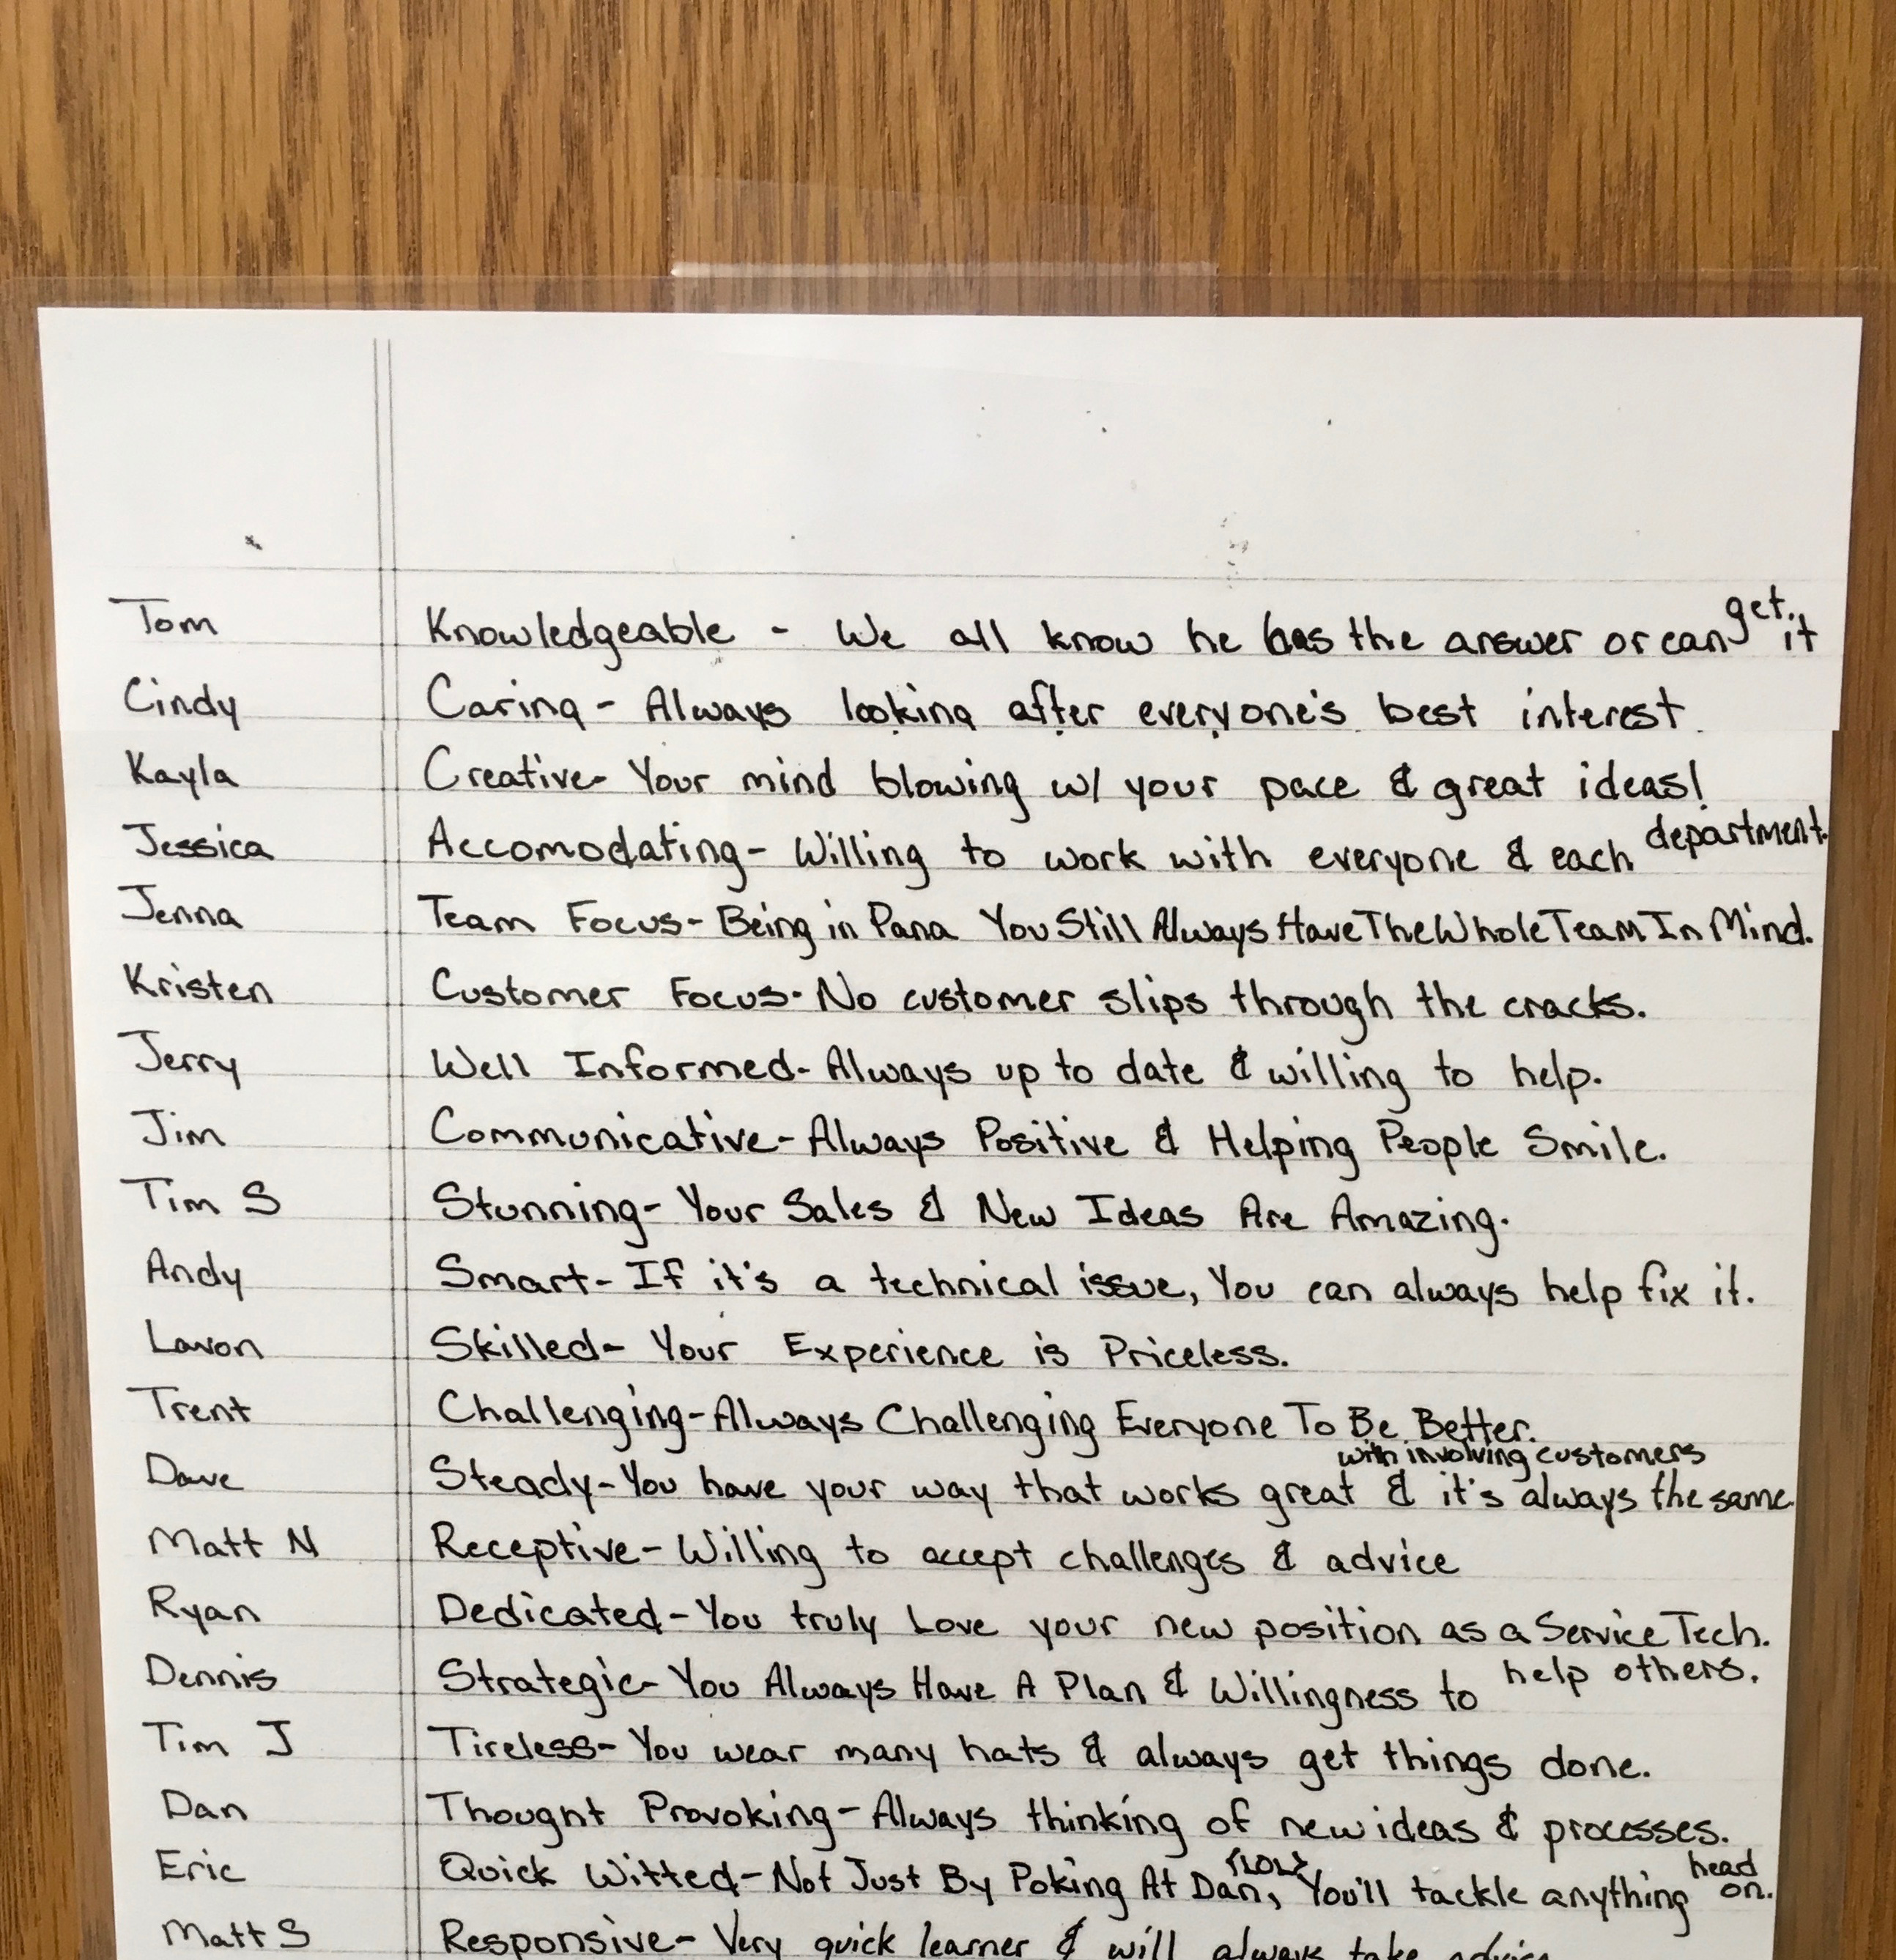 Tom Knowledgeable - We all know he has the answer or can get it
Cindy Caring - Always looking after everyone's best interest.
Kayla Creative- Your mind blowing w/ your pace & great ideas!
Jessica Accomodating- Willing to work with everyone & each department.
Jenna Team Focus- Being in Pana You Still Always Have The Whole Team In Mind.
Kristen Customer Focus- No customer slips through the cracks.
Jerry Well Informed- Always up to date & willing to help.
Jim Communicative- Always Positive & Helping People Smile.
Tim S Stunning- Your Sales & New Ideas Are Amazing.
Andy Smart- If it's a technical issue, You can always help fix it.
Lavon Skilled- Your Experience is Priceless.
Trent Challenging- Always Challenging Everyone To Be Better.
with involving customers
Dave Steady- You have your way that works great & it's always the same.
Matt N Receptive- Willing to accept challenges & advice
Ryan Dedicated- You truly Love your new position as a Service Tech.
Dennis Strategic- You Always Have A Plan & Willingness to help others.
Tim J Tireless- You wear many hats & always get things done.
Dan Thought Provoking- Always thinking of new ideas & processes.
Eric Quick Witted- Not Just By Poking At Dan, (LOL) You'll tackle anything head on.
Matt S Responsive- Very quick learner & will always take advice